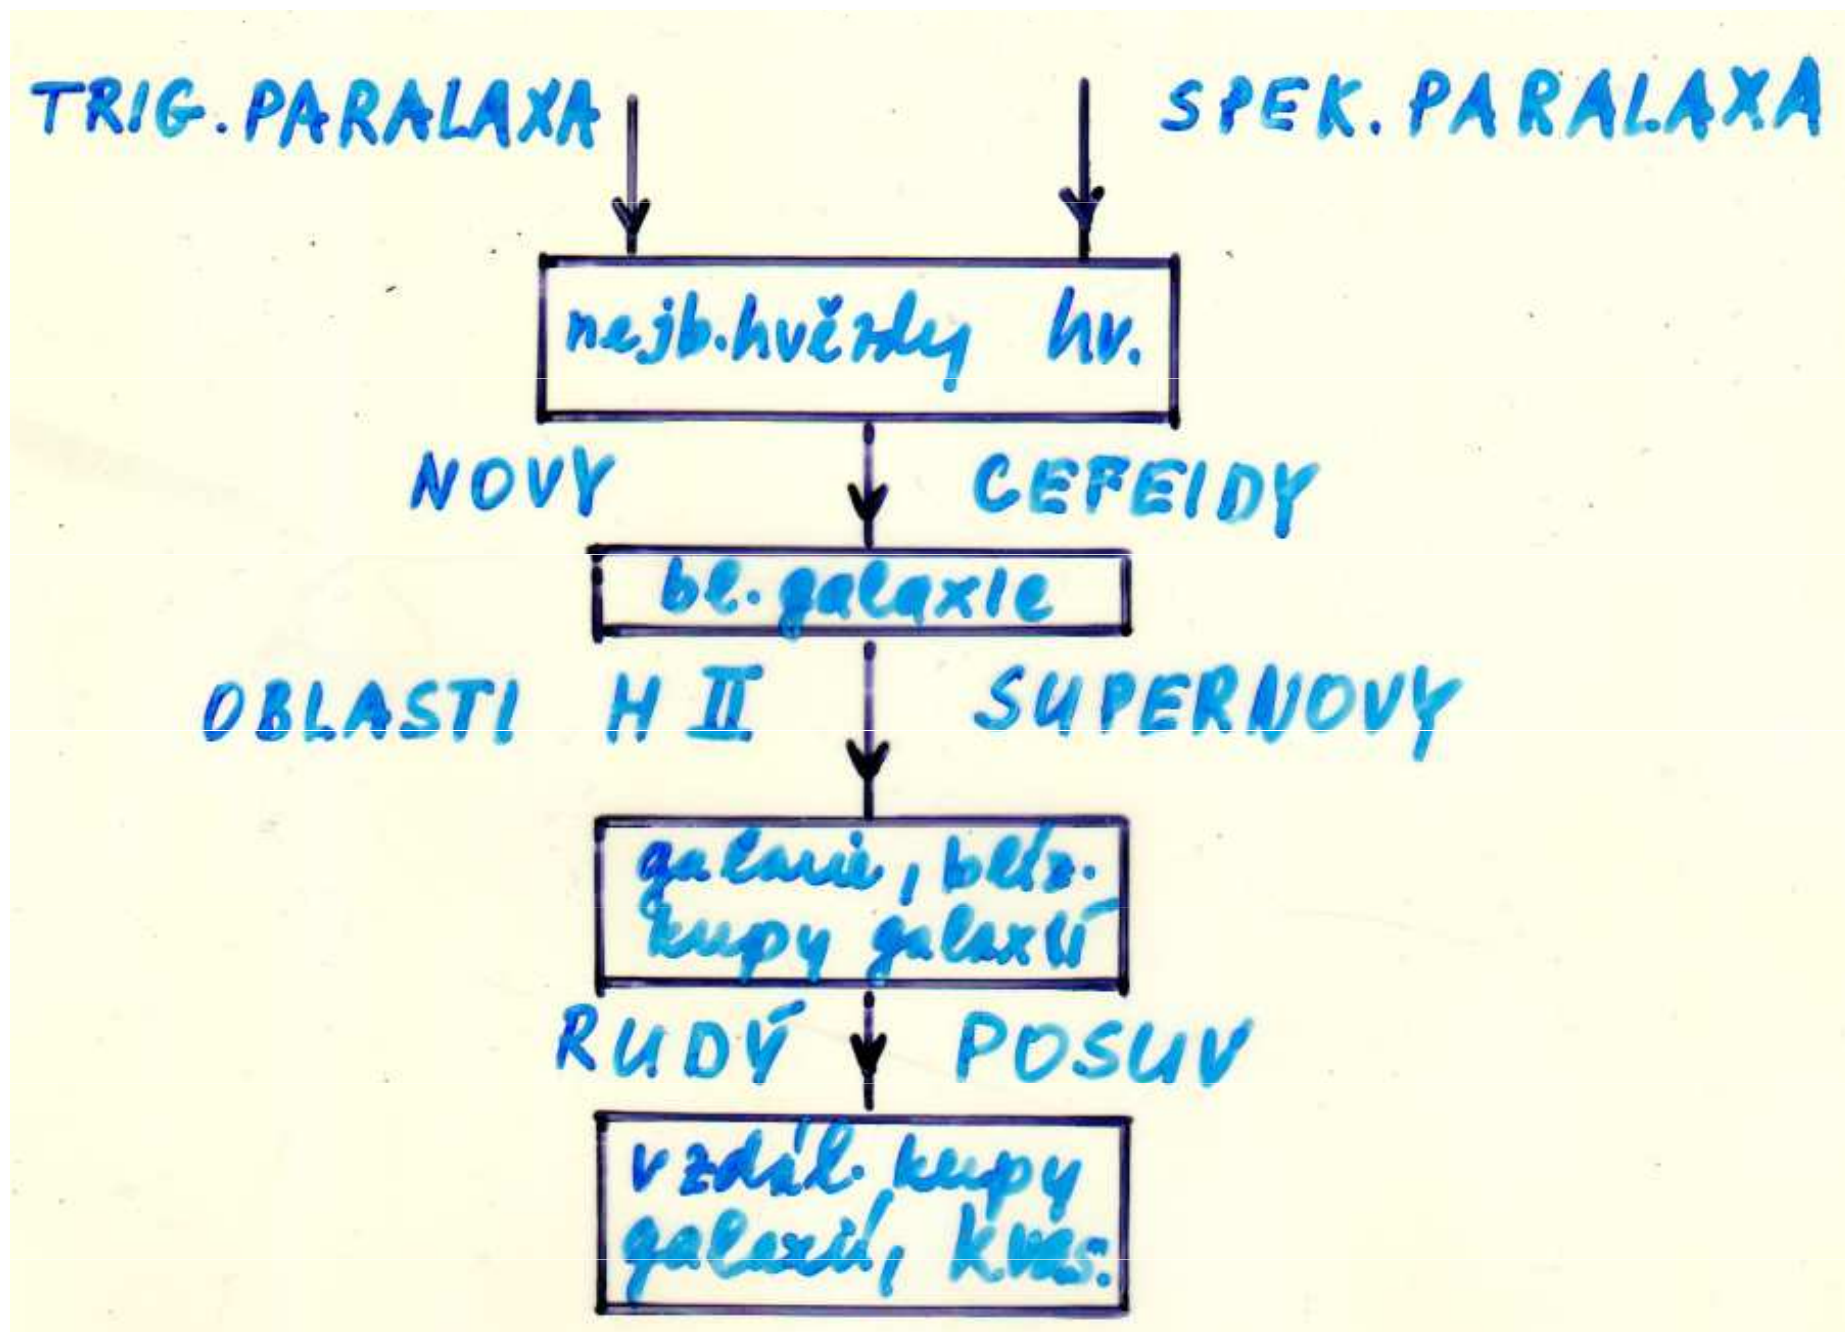 TRIG. PARALAXA SPEK. PARALAXA
nejb. hvězdy hv.
NOVY CEFEIDY
bl. galaxie
OBLASTI H II SUPERNOVY
galaxie, blíz.
kupy galaxií
RUDÝ POSUV
vzdál. kupy
galaxií, kvas.